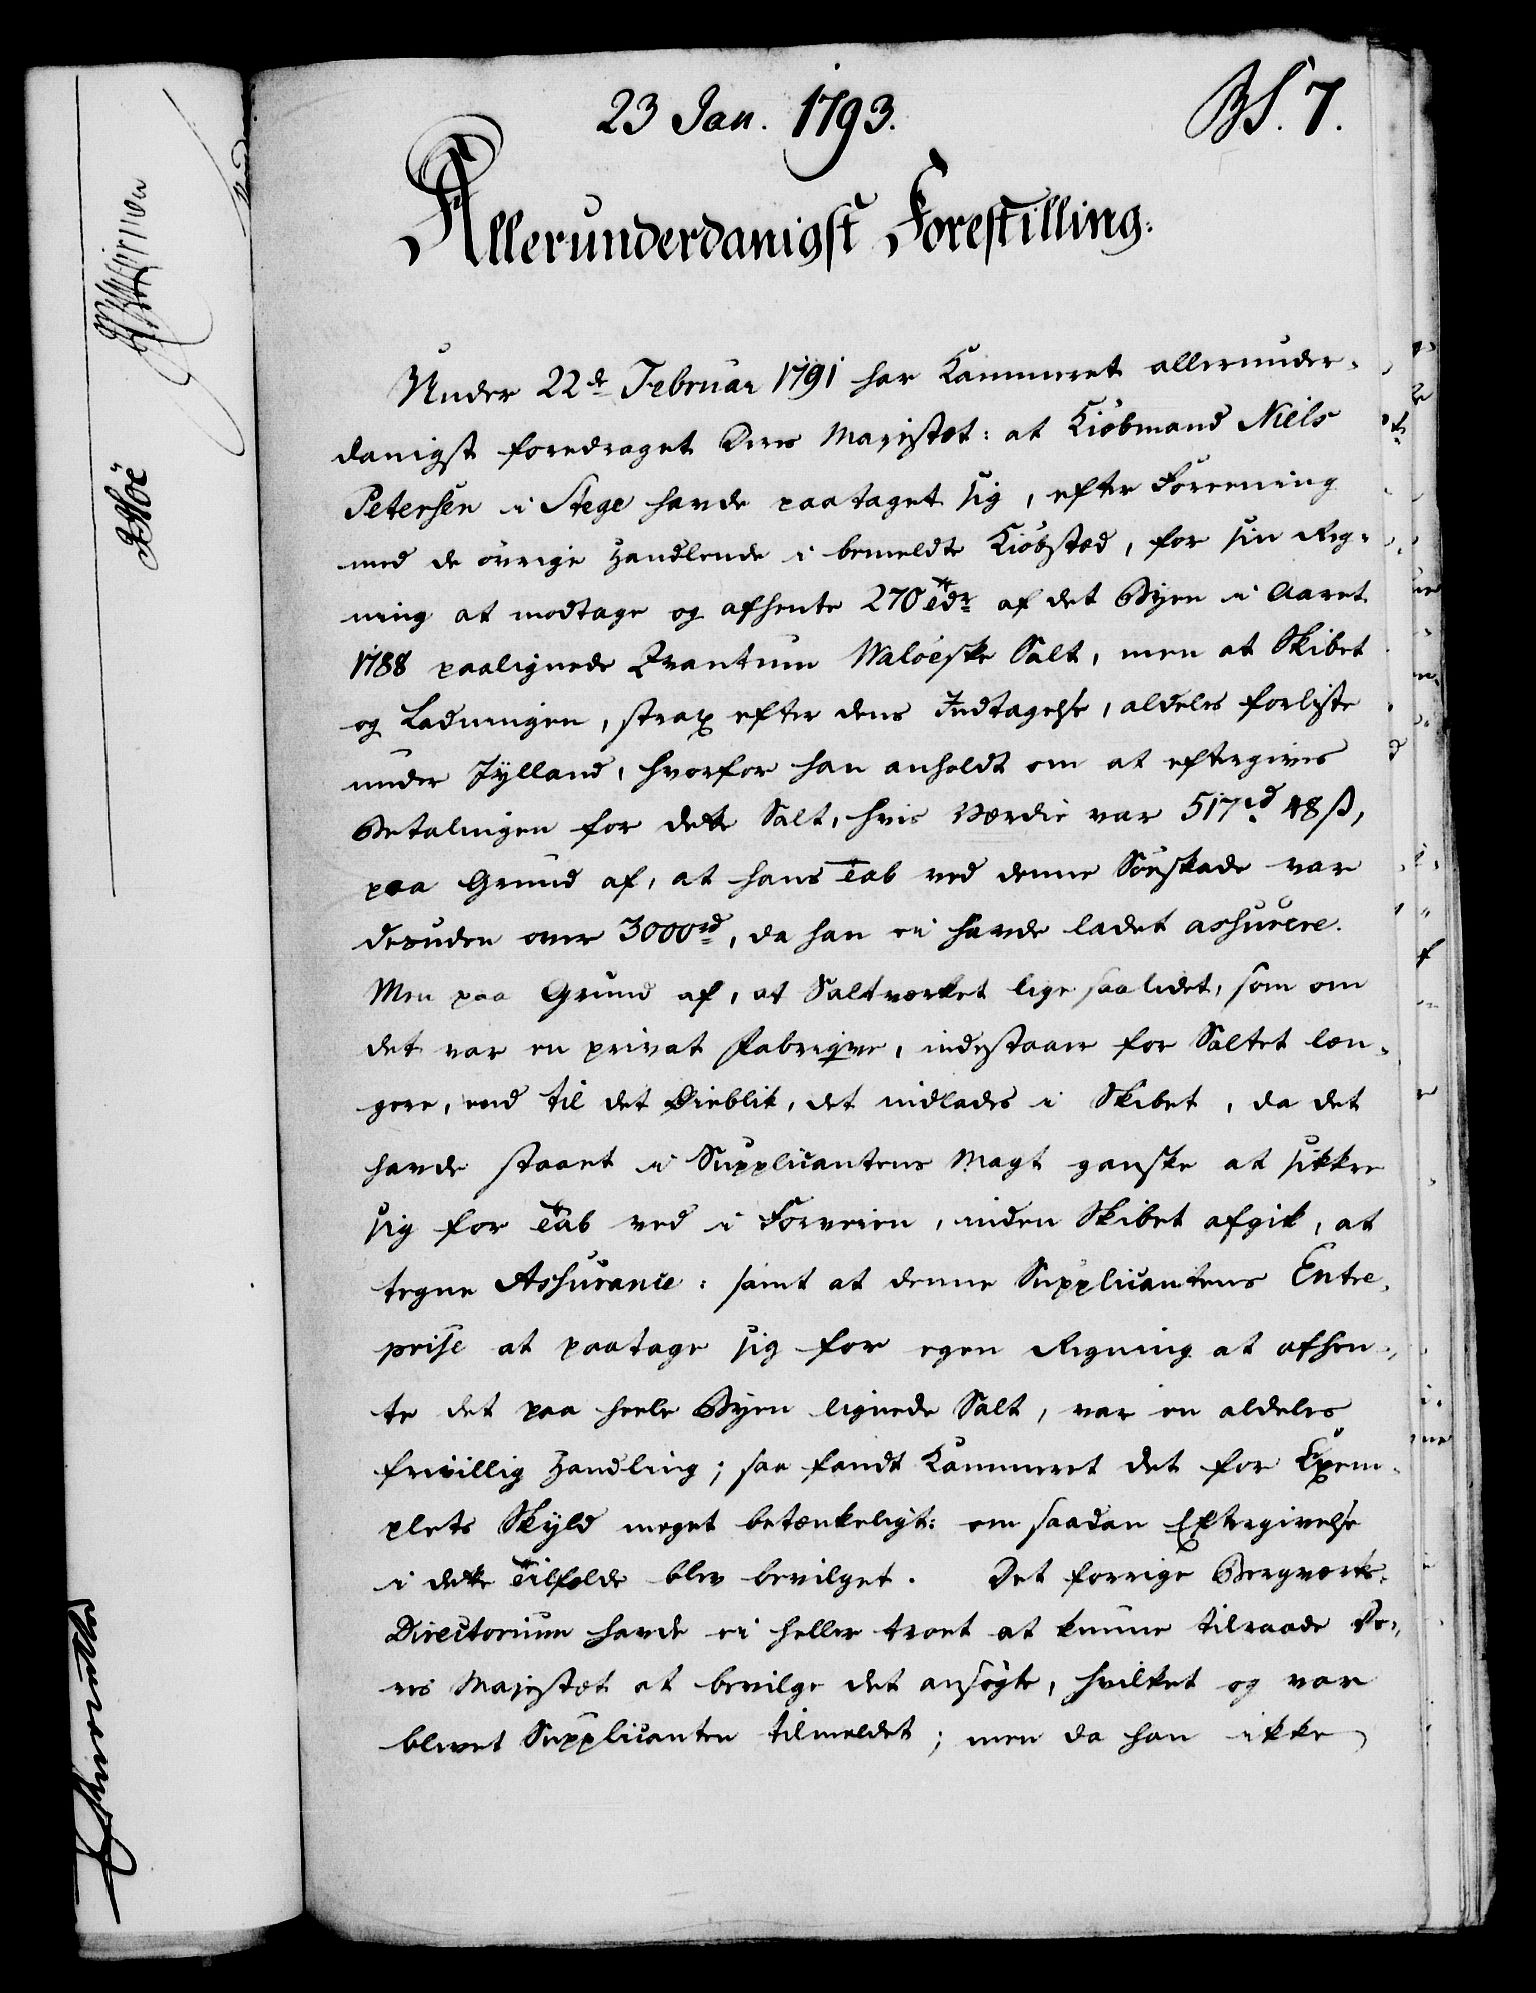 23 Jan. 1793.
BS. 7.
Allerunderdanigst Forestilling.
Under 22de Februar 1791 har Kammeret allerunder-
danigst foredraget Deres Majestæt: at Kiøbmand Niels
Petersen i Stege havde paataget sig, efter Foreening
med de övrige Handlende i bemeldte Kiöbstæd, for sin Reg-
ning at modtage og afhente 270 Tdr af det Byen i Aaret
1788 paalignede Qvantum Waløeske Salt, men at Skibet
og Ladningen, strax efter dens Indtagelse, aldeles forliste
under Jylland, hvorfor han anholdt om at eftergives
Betalingen for dette Salt, hvis Værdie var 517 rd 48 ß,
paa Grund af, at hans Tab ved denne Söeskade var
desuden over 3000 rd, da han ei havde ladet assurere.
Men paa Grund af, at Saltværket lige saa lidet, som om
det var en privat Fabriqve, indestaaer for Saltet læn-
gere, end til det Øieblik, det indlades i Skibet, da det
havde staaet i Supplicantens Magt ganske at sikkre
sig for Tab ved i Forveien, inden Skibet afgik, at
tegne Assurance: samt at denne Supplicantens Entre-
prise at paatage sig for egen Regning at afhen-
te det paa heele Byen lignede Salt, var en aldeles
frivillig Handling; saa fandt Kammeret det for Exem-
plets Skyld meget betænkeligt: om saadan Eftergivelse
i dette Tilfælde blev bevilget. Det forrige Bergværks-
Directorium havde ei heller troet at kunne tilraade De-
res Majestæt at bevilge det ansøgte, hvilket og var
blevet Supplicanten tilmeldet; men da han ikke